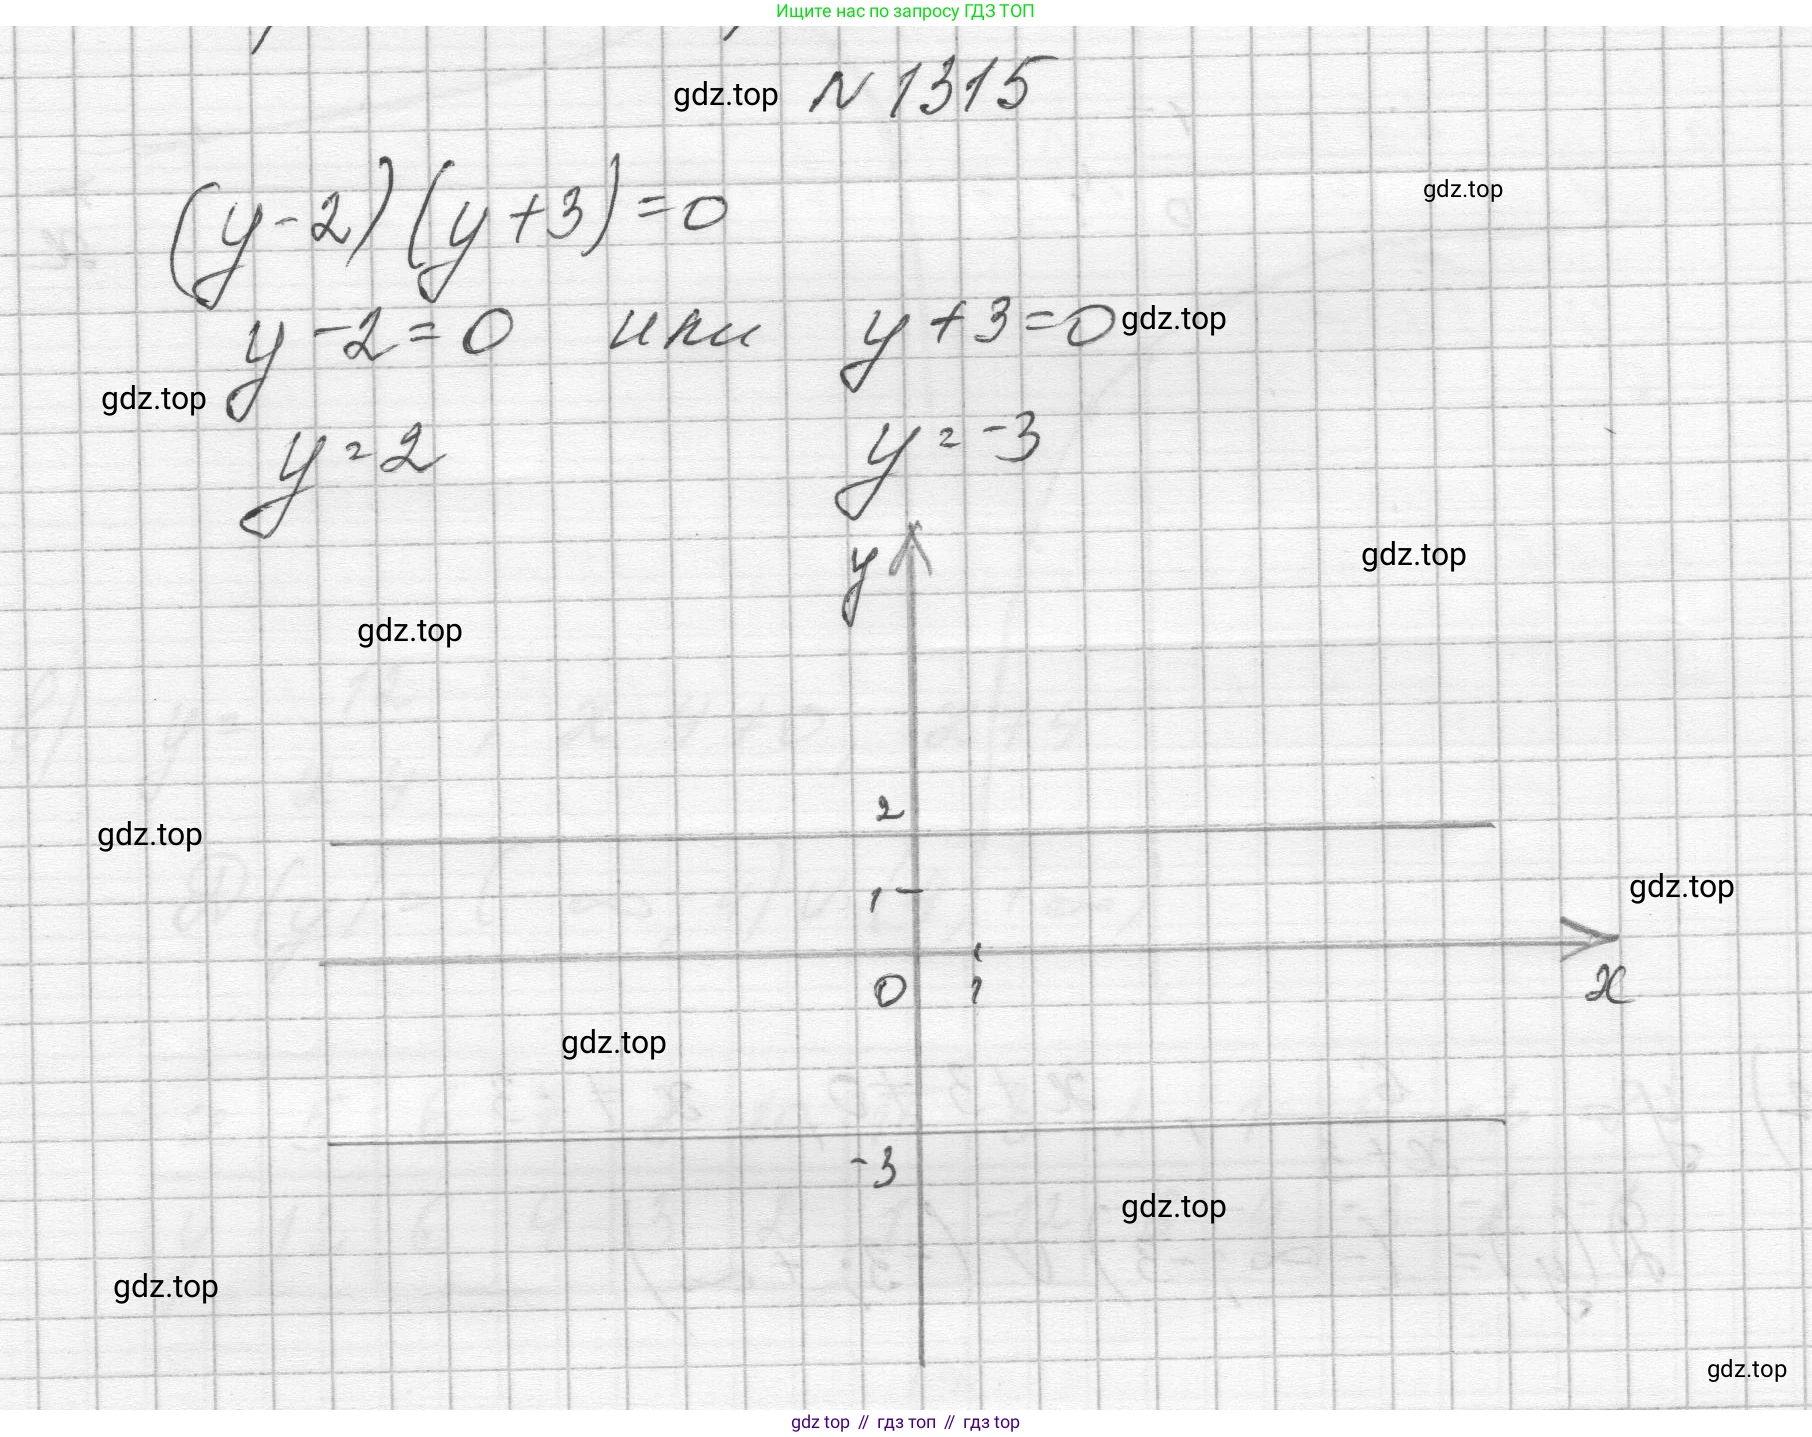 Ищите нас по запросу ГДЗ ТОП
gdz.top N 1315
gdz.top
(y-2)(y+3)=0
y-2=0 или y+3=0 gdz.top
gdz.top
y=2 y=-3
gdz.top
y
gdz.top
2
gdz.top
1
gdz.top
0 1 x
gdz.top
-3
gdz.top
gdz.top
gdz.top
gdz top // гдз топ // гдз top